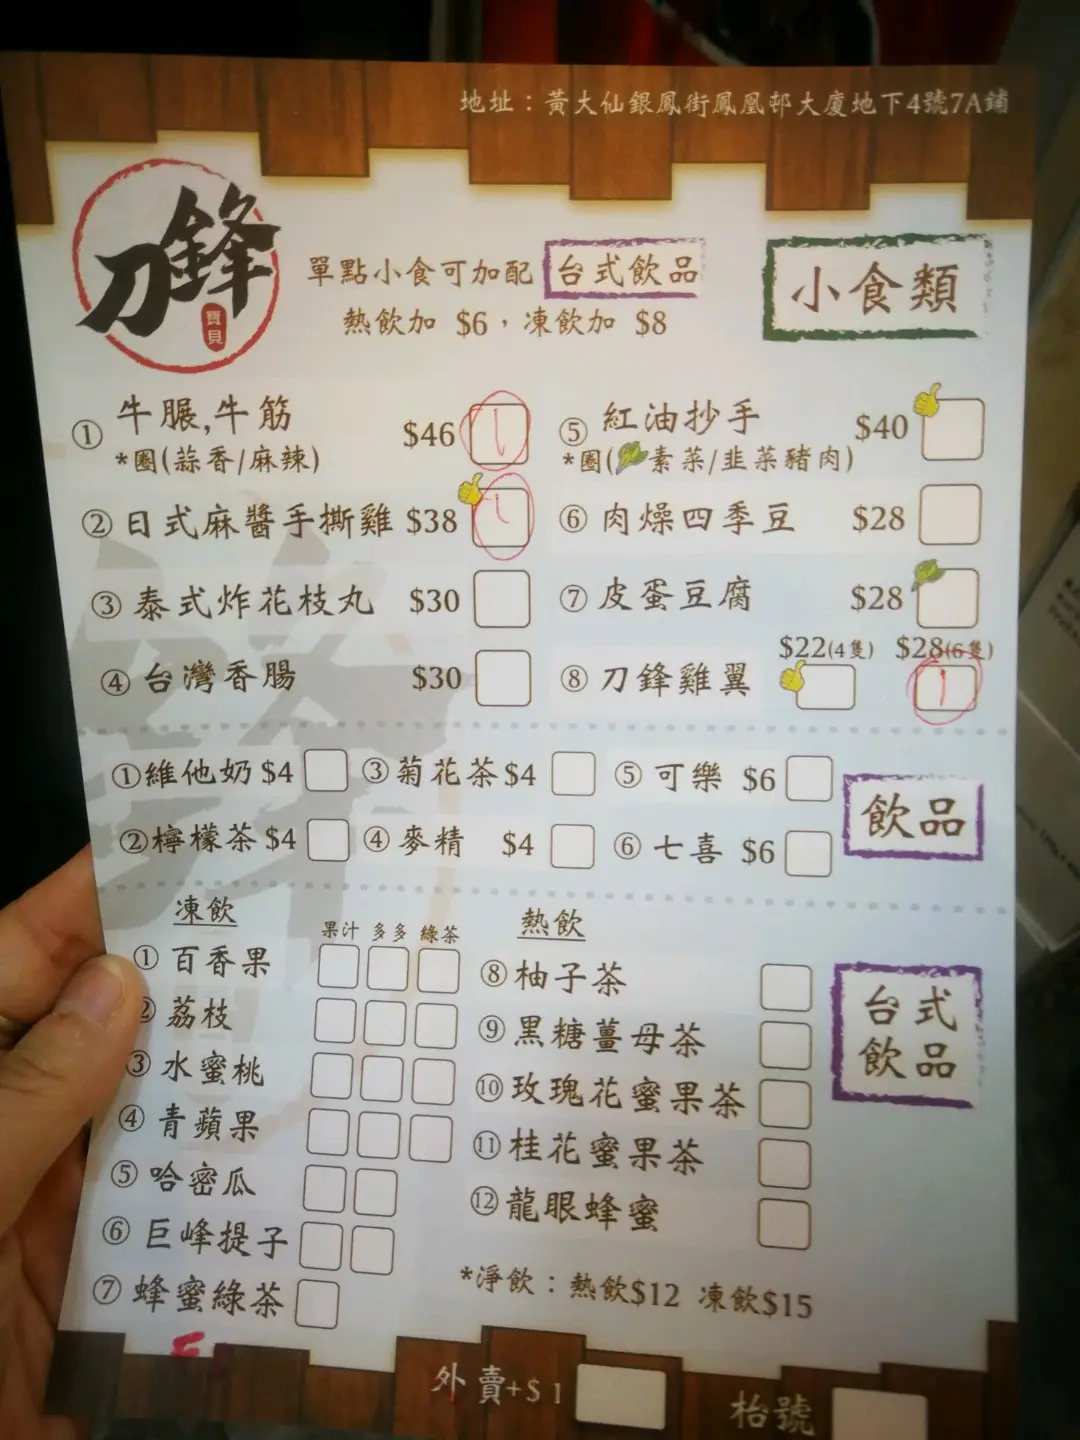 地址：黃大仙銀鳳街鳳凰邨大廈地下4號7A鋪
刀鋒
寶貝
單點小食可加配 台式飲品
熱飲加 $6，凍飲加 $8
小食類
① 牛𦟌,牛筋 $46
*圈(蒜香/麻辣)
② 日式麻醬手撕雞 $38
③ 泰式炸花枝丸 $30
④ 台灣香腸 $30
⑤ 紅油抄手 $40
*圈(素菜/韭菜豬肉)
⑥ 肉燥四季豆 $28
⑦ 皮蛋豆腐 $28
$22(4隻) $28(6隻)
⑧ 刀鋒雞翼
①維他奶 $4 ③菊花茶 $4 ⑤ 可樂 $6
②檸檬茶 $4 ④ 麥精 $4 ⑥ 七喜 $6
飲品
凍飲
果汁 多多 綠茶
① 百香果
② 荔枝
③ 水蜜桃
④ 青蘋果
⑤ 哈密瓜
⑥ 巨峰提子
⑦ 蜂蜜綠茶
熱飲
⑧ 柚子茶
⑨ 黑糖薑母茶
⑩ 玫瑰花蜜果茶
⑪ 桂花蜜果茶
⑫ 龍眼蜂蜜
台式
飲品
*淨飲：熱飲$12 凍飲$15
外賣+$1
枱號